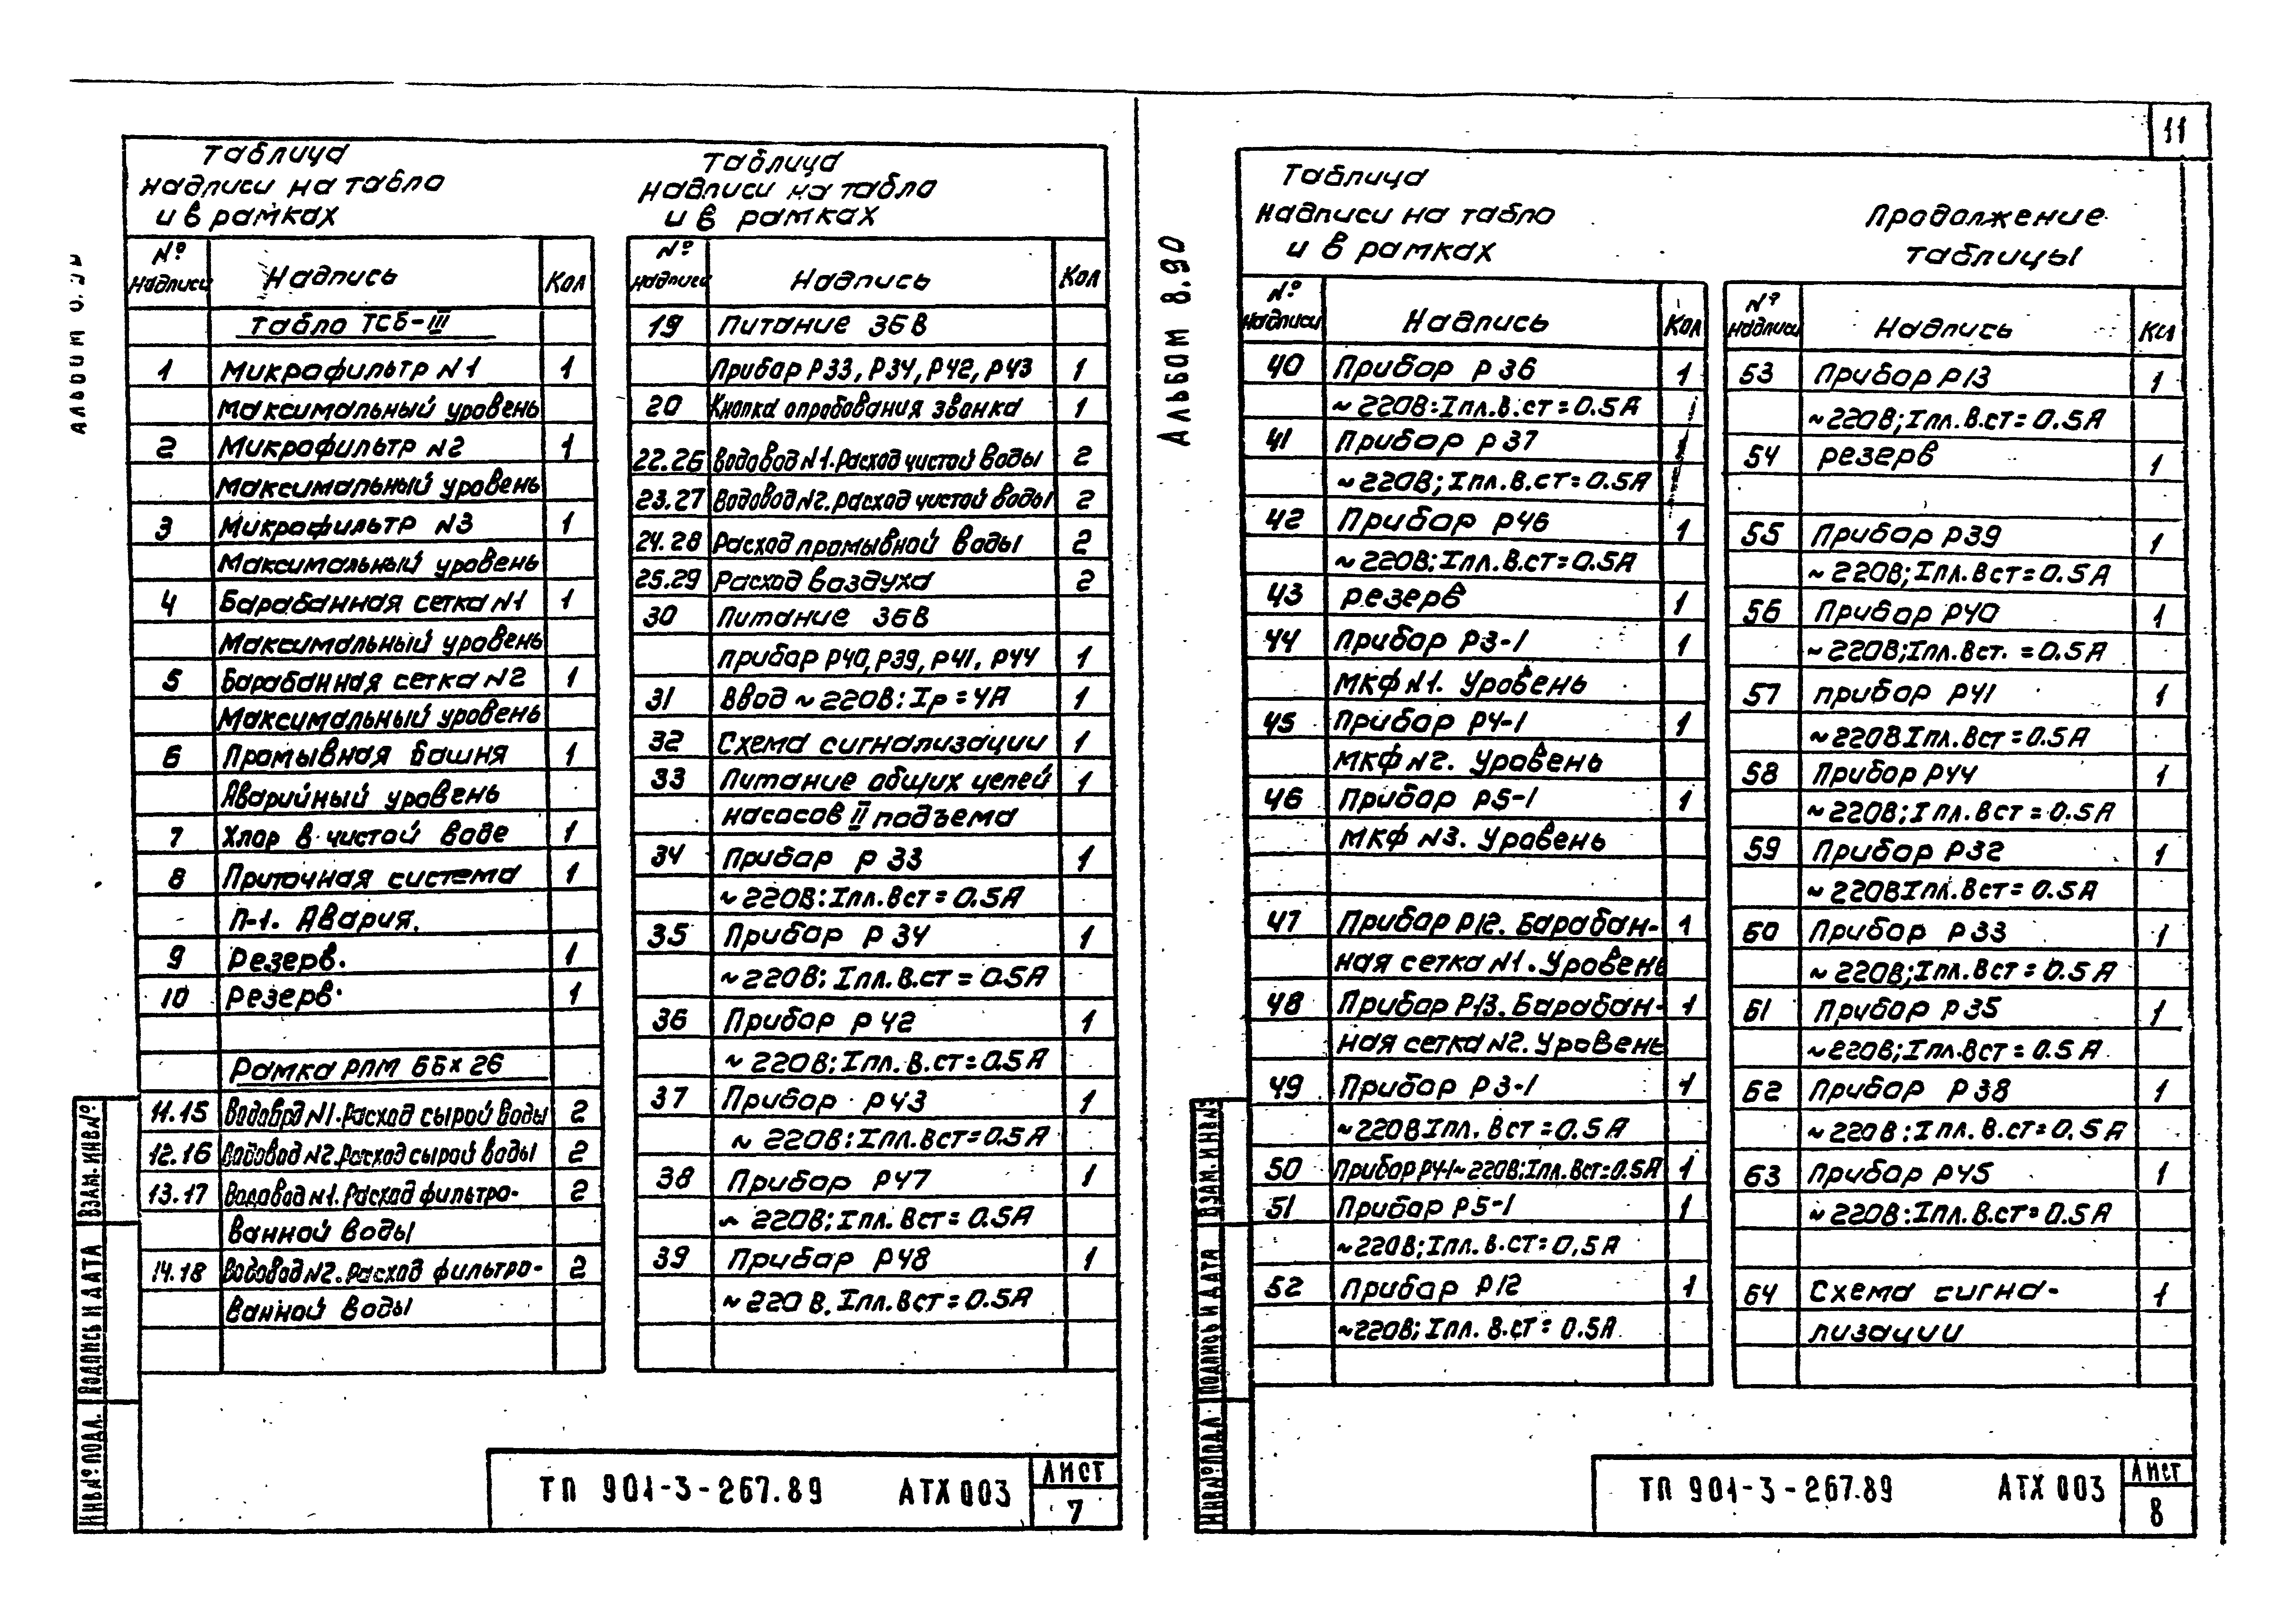 11
Таблица
надписи на табло
и в рамках
№ надписи Надпись Кол
Табло ТСБ-III
1 Микрофильтр N1 1
Максимальный уровень
2 Микрофильтр N2 1
Максимальный уровень
3 Микрофильтр N3 1
Максимальный уровень
4 Барабанная сетка N1 1
Максимальный уровень
5 Барабанная сетка N2 1
Максимальный уровень
6 Промывная башня 1
Аварийный уровень
7 Хлор в чистой воде 1
8 Приточная система 1
П-1. Авария.
9 Резерв. 1
10 Резерв. 1
Рамка РПМ 66х26
11.15 Водовод N1. Расход сырой воды 2
12.16 Водовод N2. Расход сырой воды 2
13.17 Водовод N1. Расход фильтро- 2
ванной воды
14.18 Водовод N2. Расход фильтро- 2
ванной воды
Таблица
надписи на табло
и в рамках
№ надписи Надпись Кол
19 Питание 36В
Прибор Р33, Р34, Р42, Р43 1
20 Кнопка опробования звонка 1
22.26 Водовод N1. Расход чистой воды 2
23.27 Водовод N2. Расход чистой воды 2
24.28 Расход промывной воды 2
25.29 Расход воздуха 2
30 Питание 36В
прибор Р40, Р39, Р41, Р44 1
31 Ввод ~220В: Iр = 4А 1
32 Схема сигнализации 1
33 Питание общих цепей 1
насосов II подъема
34 Прибор Р33 1
~220В: Iпл. Вст = 0.5А
35 Прибор Р34 1
~220В; Iпл. В.ст = 0.5А
36 Прибор Р42 1
~220В; Iпл. В.ст = 0.5А
37 Прибор Р43 1
~220В: Iпл. Вст = 0.5А
38 Прибор Р47 1
~220В: Iпл. Вст = 0.5А
39 Прибор Р48 1
~220В. Iпл. Вст = 0.5А
ВЗАМ. ИНВ №
ПОДПИСЬ И ДАТА
ИНВ № ПОДЛ.
ТП 901-3-267.89 АТХ 003 ЛИСТ
7
Альбом 8.90
Таблица
Надписи на табло
и в рамках
№ надписи Надпись Кол
40 Прибор Р36 1
~220В: Iпл. В.ст = 0.5А
41 Прибор Р37 1
~220В; Iпл. В.ст = 0.5А
42 Прибор Р46 1
~220В; Iпл. В.ст = 0.5А
43 резерв 1
44 Прибор Р3-1 1
МКФ N1. Уровень
45 Прибор Р4-1 1
МКФ N2. Уровень
46 Прибор Р5-1 1
МКФ N3. Уровень
47 Прибор Р12. Барабан- 1
ная сетка N1. Уровень
48 Прибор Р13. Барабан- 1
ная сетка N2. Уровень
49 Прибор Р3-1 1
~220В Iпл. Вст = 0.5А
50 Прибор Р4-1 ~220В; Iпл. Вст = 0.5А 1
51 Прибор Р5-1 1
~220В; Iпл. В.ст = 0,5А
52 Прибор Р12 1
~220В; Iпл. В.ст = 0.5А
Продолжение
таблицы
№ надписи Надпись Кол
53 Прибор Р13 1
~220В; Iпл. В.ст = 0.5А
54 резерв 1
55 Прибор Р39 1
~220В; Iпл. Вст = 0.5А
56 Прибор Р40 1
~220В; Iпл. Вст. = 0.5А
57 прибор Р41 1
~220В Iпл. Вст = 0.5А
58 Прибор Р44 1
~220В; Iпл. Вст = 0.5А
59 Прибор Р32 1
~220В Iпл. Вст = 0.5А
60 Прибор Р33 1
~220В; Iпл. Вст = 0.5А
61 Прибор Р35 1
~220В; Iпл. Вст = 0.5А
62 Прибор Р38 1
~220В: Iпл. В.ст = 0.5А
63 Прибор Р45 1
~220В: Iпл. В.ст = 0.5А
64 Схема сигна- 1
лизации
ВЗАМ. ИНВ №
ПОДПИСЬ И ДАТА
ИНВ № ПОДЛ.
ТП 901-3-267.89 АТХ 003 ЛИСТ
8